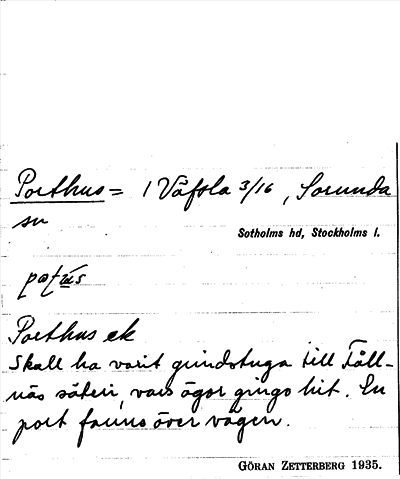 Porthus = 1 Väfsla 3/16, Sorunda
sn
Sotholms hd, Stockholms l.
Porthus ek
Skall ha varit grindstuga till Fåll-
näs säteri, vars ägor gingo hit. En
port fanns över vägen.
GÖRAN ZETTERBERG 1935.